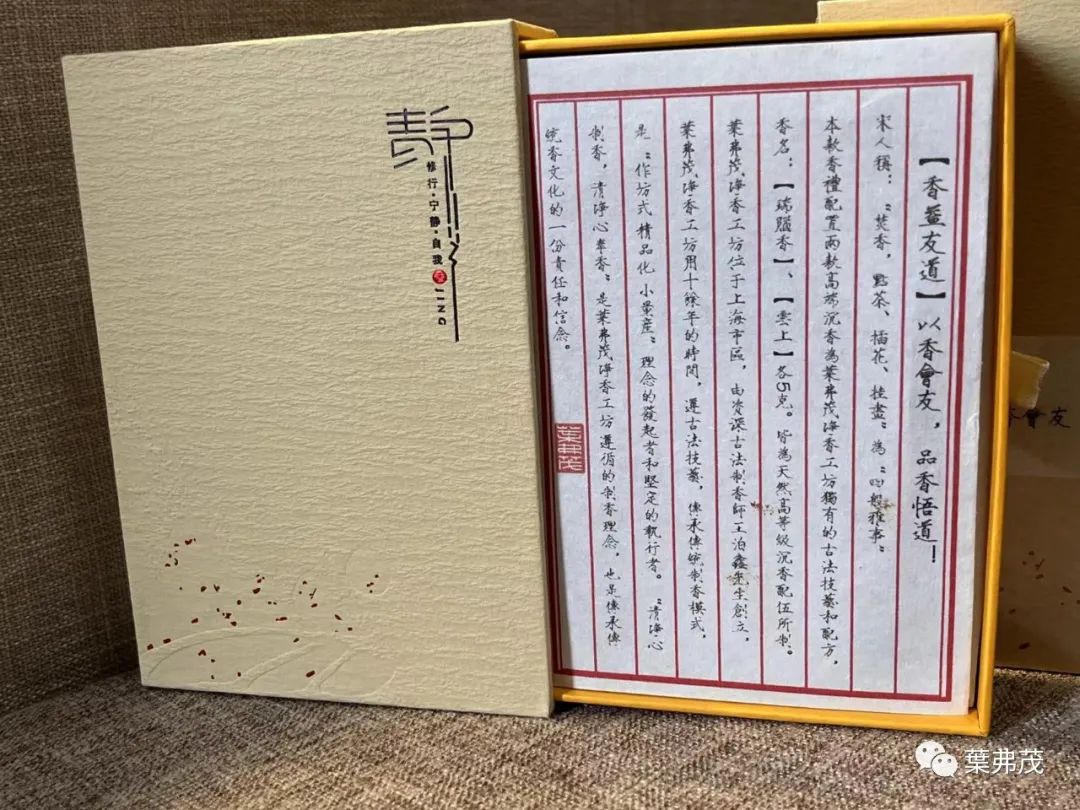 靜
修行·宁静·自我
JING
【香益友道】以香會友，品香悟道！
宋人稱："焚香，點茶、插花、挂畫"為"四般雅事"
本款香禮配置兩款高端沉香為葉弗茂海香工坊獨有的古法技藝和配方，
香名：【瑞腦香】、【雲上】各5克。皆為天然高等級沉香配伍所制。
葉弗茂海香工坊位于上海市區，由资深古法制香師王泊鑫先生創立，
葉弗茂海香工坊用十餘年的時間，遵古法技藝，傳承傳統制香模式，
是"作坊式精品化 小量産"理念的發起者和堅定的執行者。"清净心
制香，清净心奉香"是葉弗茂海香工坊遵循的制香理念，也是傳承傳
統香文化的一份責任和信念。
葉弗茂
香會友
葉弗茂